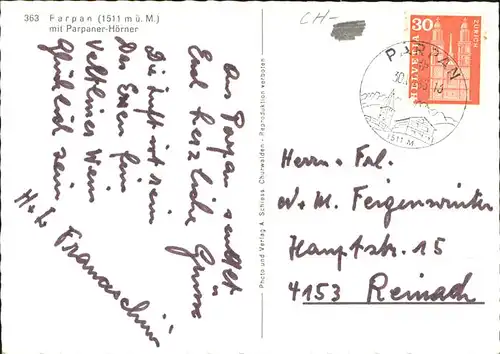 363 Parpan (1511 m ü. M.)
mit Parpaner-Hörner
CH-
30
HELVETIA
ZÜRICH
PARPAN
1511 M
Aus Parpan sendet
Euch herzliche Grüsse
Die Luft ist rein
Das Essen fein
Veltliner Wein
Glücklich sein
H + L
Photo und Verlag A. Schiess Churwalden - Reproduktion verboten
Herrn + Frl.
M. Feigenwinter
Hauptstr. 15
4153 Reinach